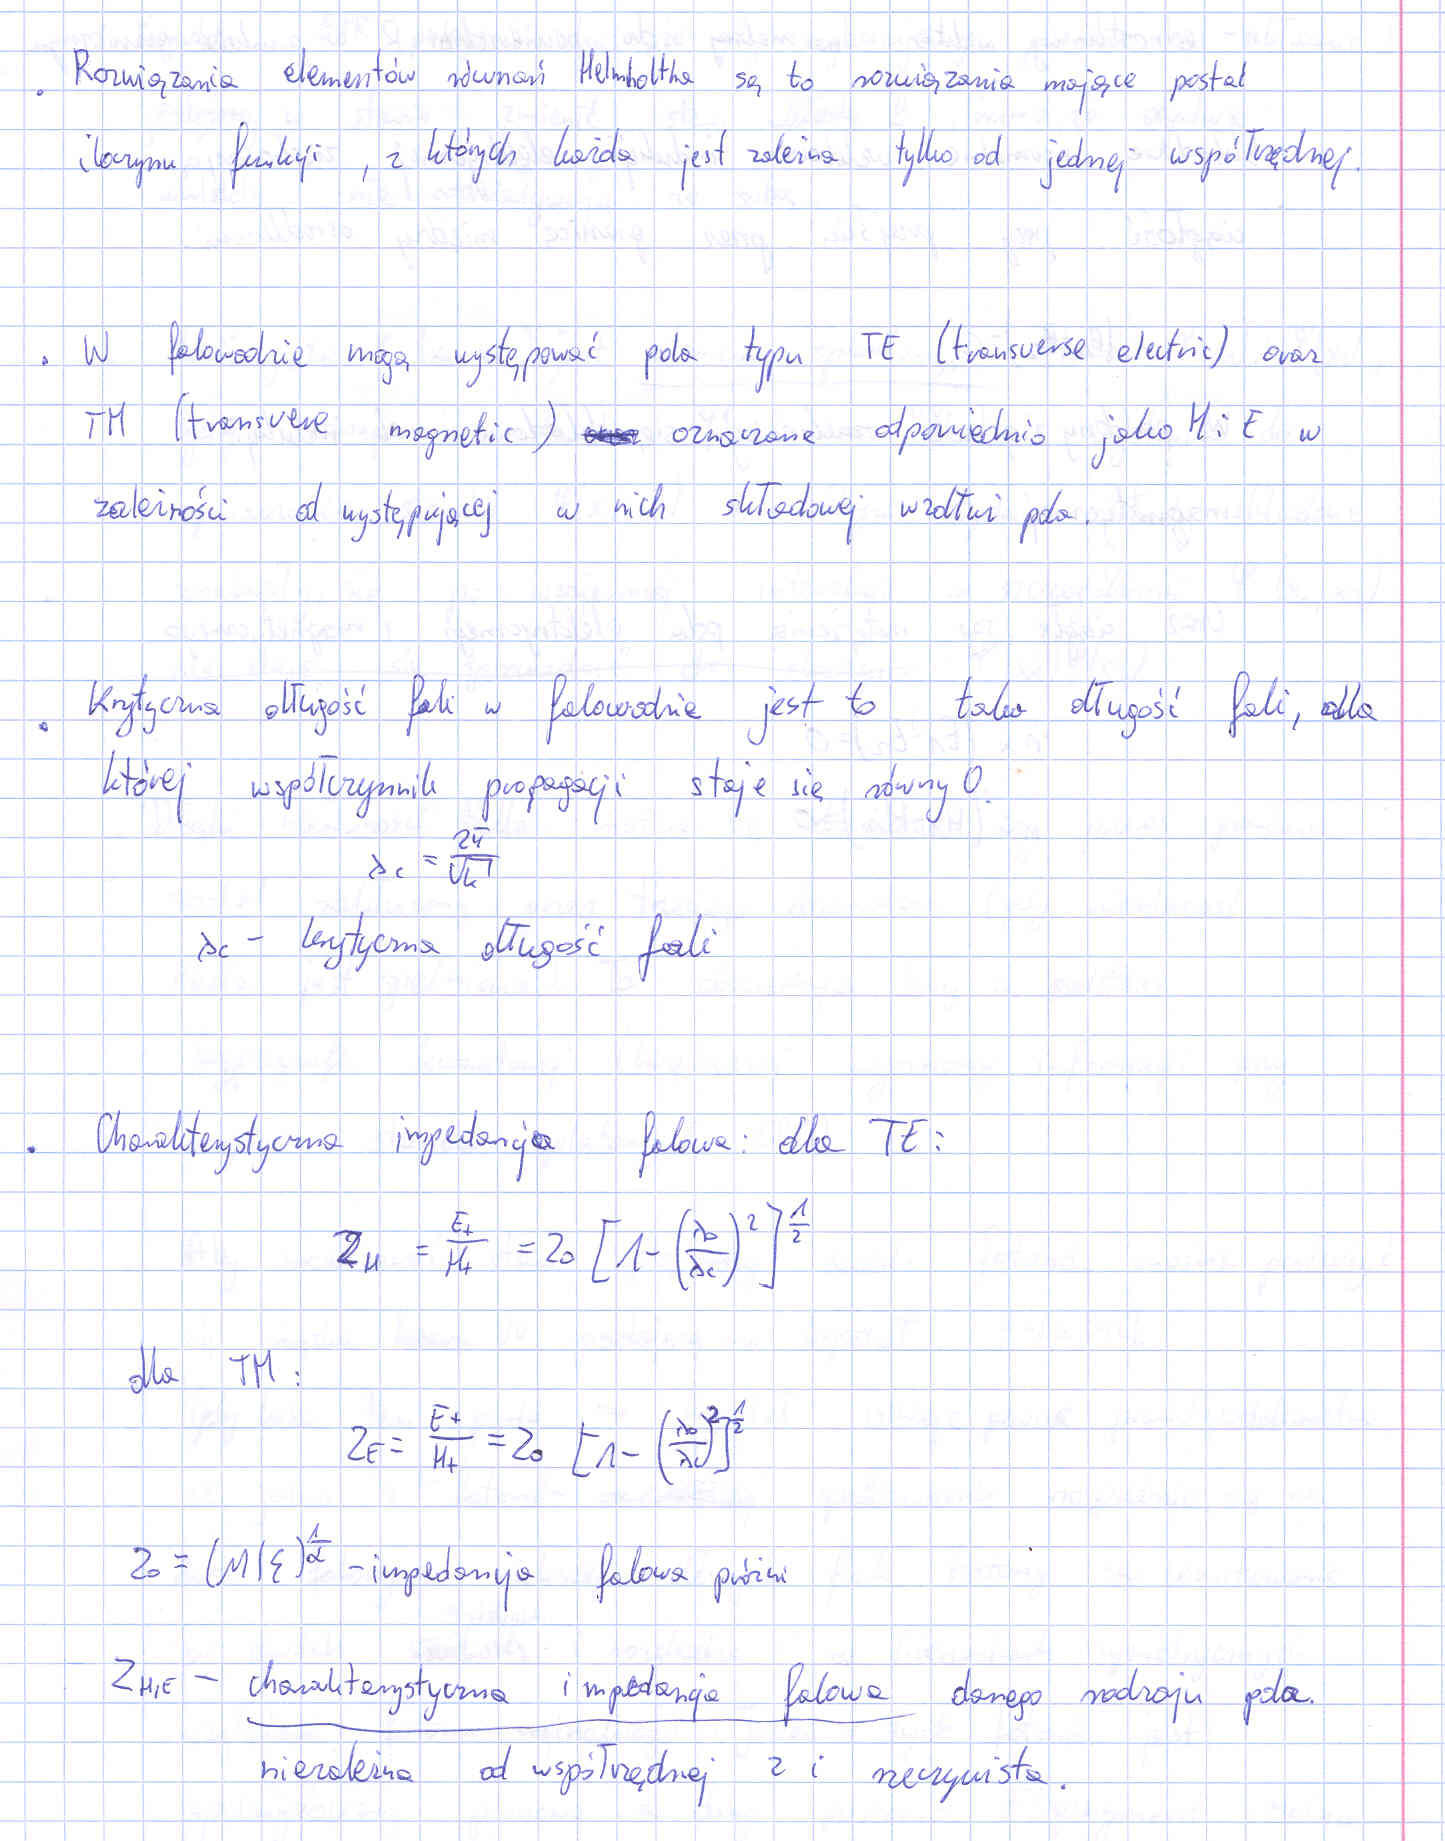 . Rozwiązania elementów równań Helmholtha są to rozwiązania mające postać
iloczynu funkcji, z których każda jest zależna tylko od jednej współrzędnej.
. W falowodzie mogą występować pola typu TE (transverse electric) oraz
TM (transvere magnetic) oznaczane odpowiednio jako H i E w
zależności od występującej w nich składowej wzdłuż pola.
. Krytyczna długość fali w falowodzie jest to taka długość fali, dla
której współczynnik propagacji staje się równy 0.
λc = 2π/√k
λc - krytyczna długość fali
. Charakterystyczna impedancja falowa: dla TE:
Z_H = E+/H+ = Z0 [1-(λ0/λc)^2]^1/2
dla TM:
Z_E = E+/H+ = Z0 [1-(λ0/λc)^2]^1/2
Z0 = (M/ε)^1/2 - impedancja falowa próżni
Z_H,E - charakterystyczna impedancja falowa danego rodzaju pola.
niezależna od współrzędnej z i rzeczywista.